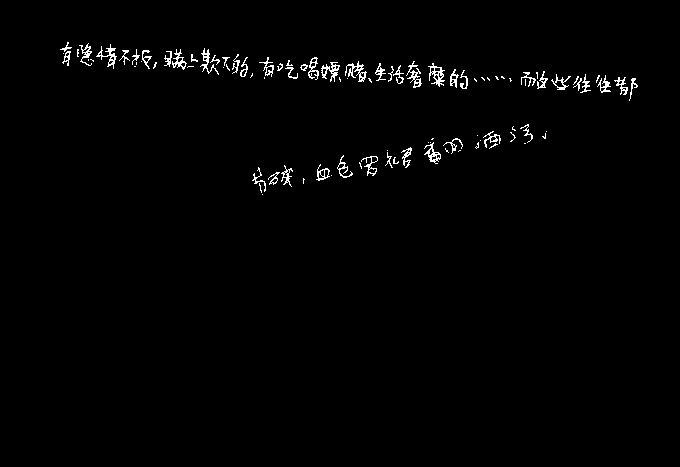 有隐情不报,瞒上欺下的,有吃喝嫖赌、生活奢糜的……而这些往往都
节碎,血色罗裙翻酒污、